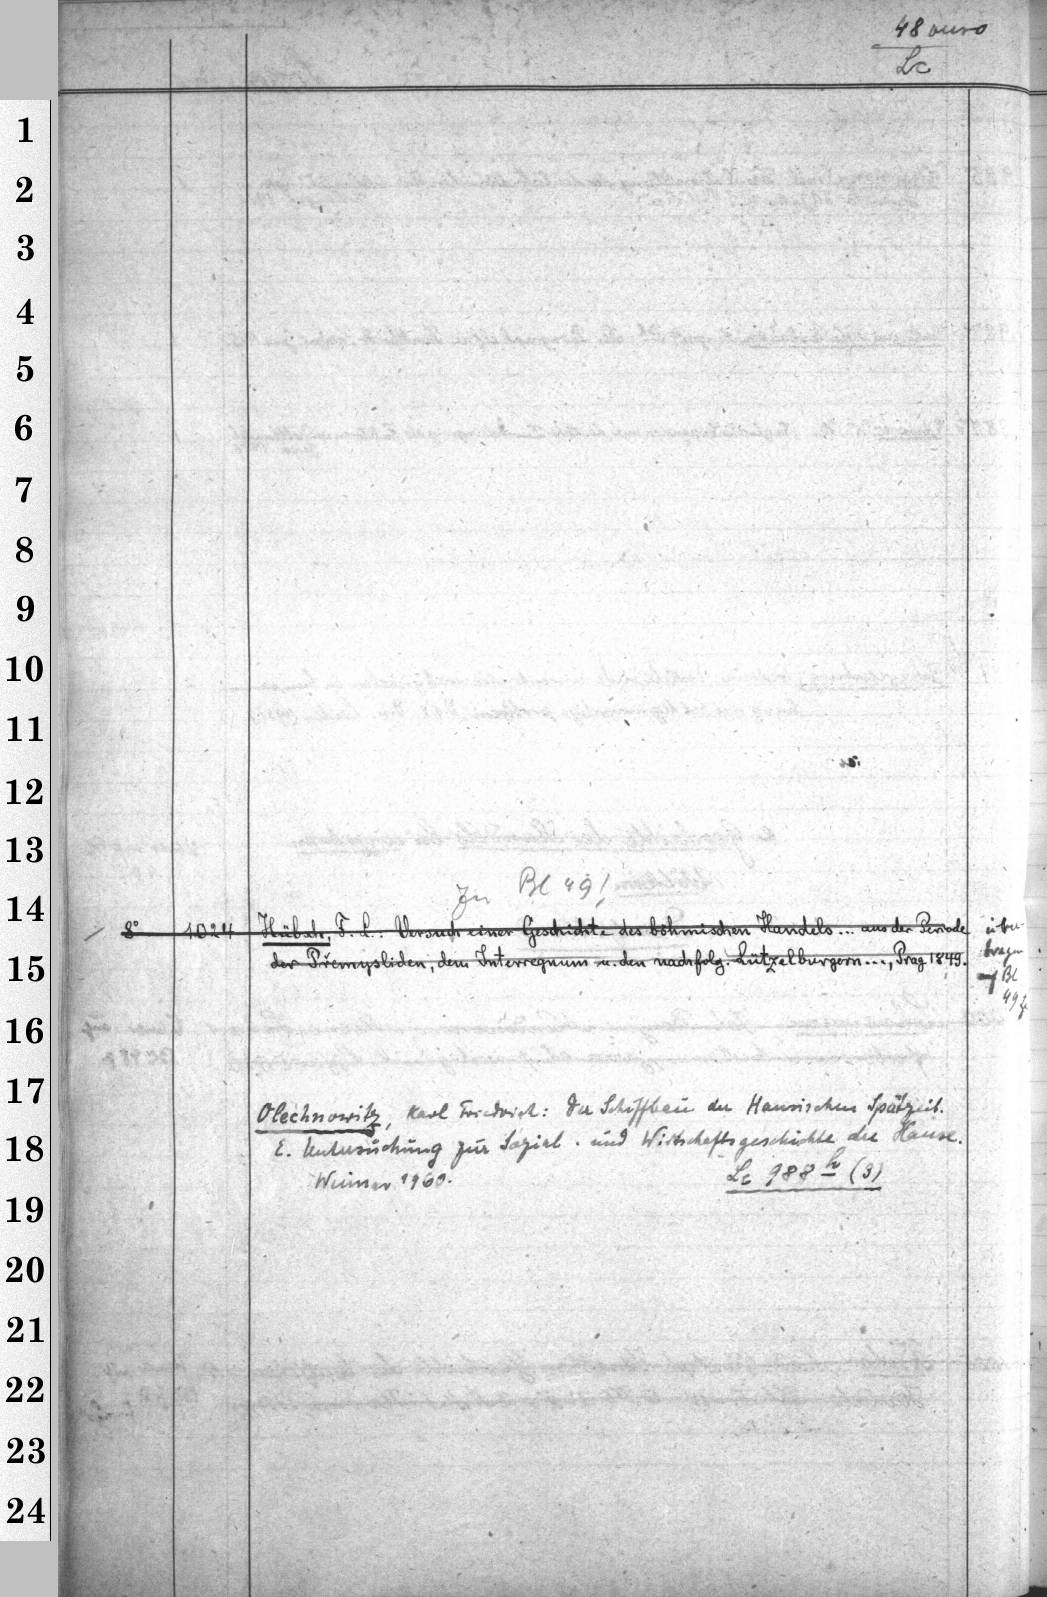 48 verso
Lc
1
2
3
4
5
6
7
8
9
10
11
12
13
Zu Bl 49!
14
8° 1024 Hübsch, F. L.: Versuch einer Geschichte des böhmischen Handels... aus der Periode
über-
tragen
15
der Přemysliden, dem Interregnum u. den nachfolg. Lützelburgern..., Prag 1849.
Bl
49
16
17
Olechnowitz, Karl Friedrich: Der Schiffbau der Hansischen Spätzeit.
18
E. Untersuchung zur Sozial- und Wirtschaftsgeschichte der Hanse.
Weimar 1960. Lc 988 h (3)
19
20
21
22
23
24